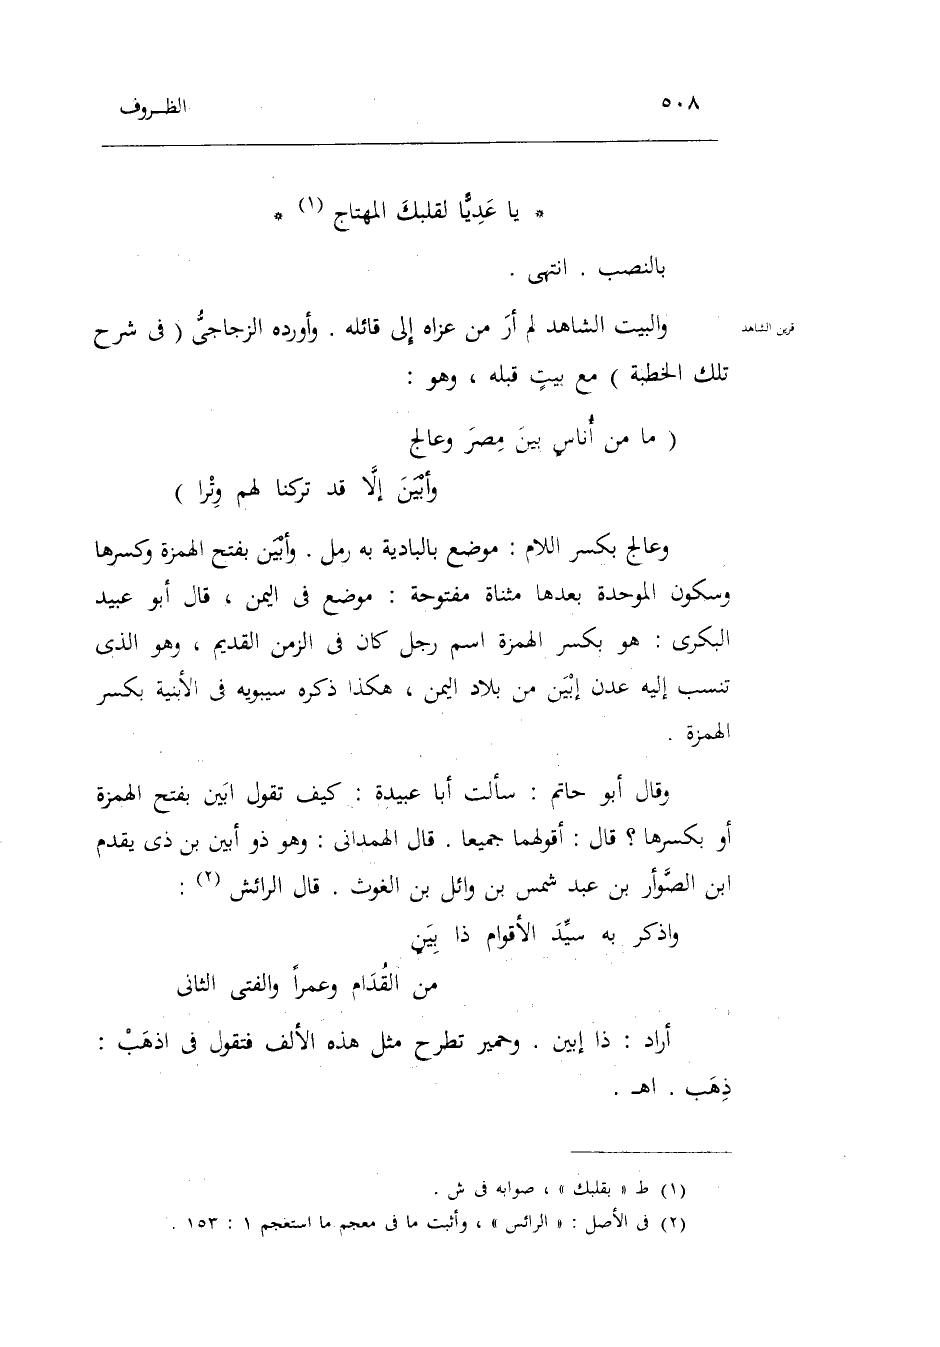 ٥٠٨ الظـروف
* يا عَدِيًّا لقلبكَ المهتاج (١) *
بالنصب . انتهى .
قرين الشاهد
والبيت الشاهد لم أرَ من عزاه إلى قائله . وأورده الزجاجىُّ ( فى شرح
تلك الخطبة ) مع بيتٍ قبله ، وهو :
( ما من أُناسٍ بينَ مِصرَ وعالج
وأبْيَنَ إلَّا قد تركنا لهم وِتْرا )
وعالج بكسر اللام : موضع بالبادية به رمل . وأبْيَن بفتح الهمزة وكسرها
وسكون الموحدة بعدها مثناة مفتوحة : موضع فى اليمن ، قال أبو عبيد
البكرى : هو بكسر الهمزة اسم رجل كان فى الزمن القديم ، وهو الذى
تنسب إليه عدن إبْيَن من بلاد اليمن ، هكذا ذكره سيبويه فى الأبنية بكسر
الهمزة .
وقال أبو حاتم : سألت أبا عبيدة : كيف تقول ابَين بفتح الهمزة
أو بكسرها ؟ قال : أقولهما جميعا . قال الهمدانى : وهو ذو أبين بن ذى يقدم
ابن الصَّوأر بن عبد شمس بن وائل بن الغوث . قال الرائش (٢) :
واذكر به سيِّدَ الأقوام ذا بِيَنٍ
من القُدَام وعمراً والفتى الثانى
أراد : ذا إبين . وحمير تطرح مثل هذه الألف فتقول فى اذهَبْ :
ذِهَب . اهـ .
(١) ط « بقلبك » ، صوابه فى ش .
(٢) فى الأصل : « الرائس » ، وأثبت ما فى معجم ما استعجم ١ : ١٥٣ .